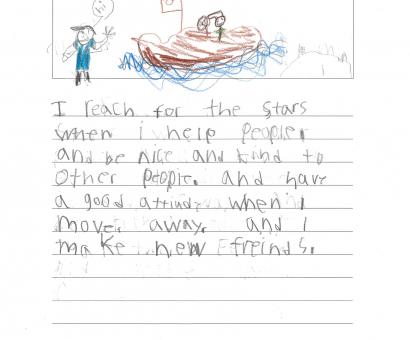 hi
I reach for the stars
when i help people,
and be nice and kind to
other people. and have
a good attiude when I
move. away. and I
make new freinds.